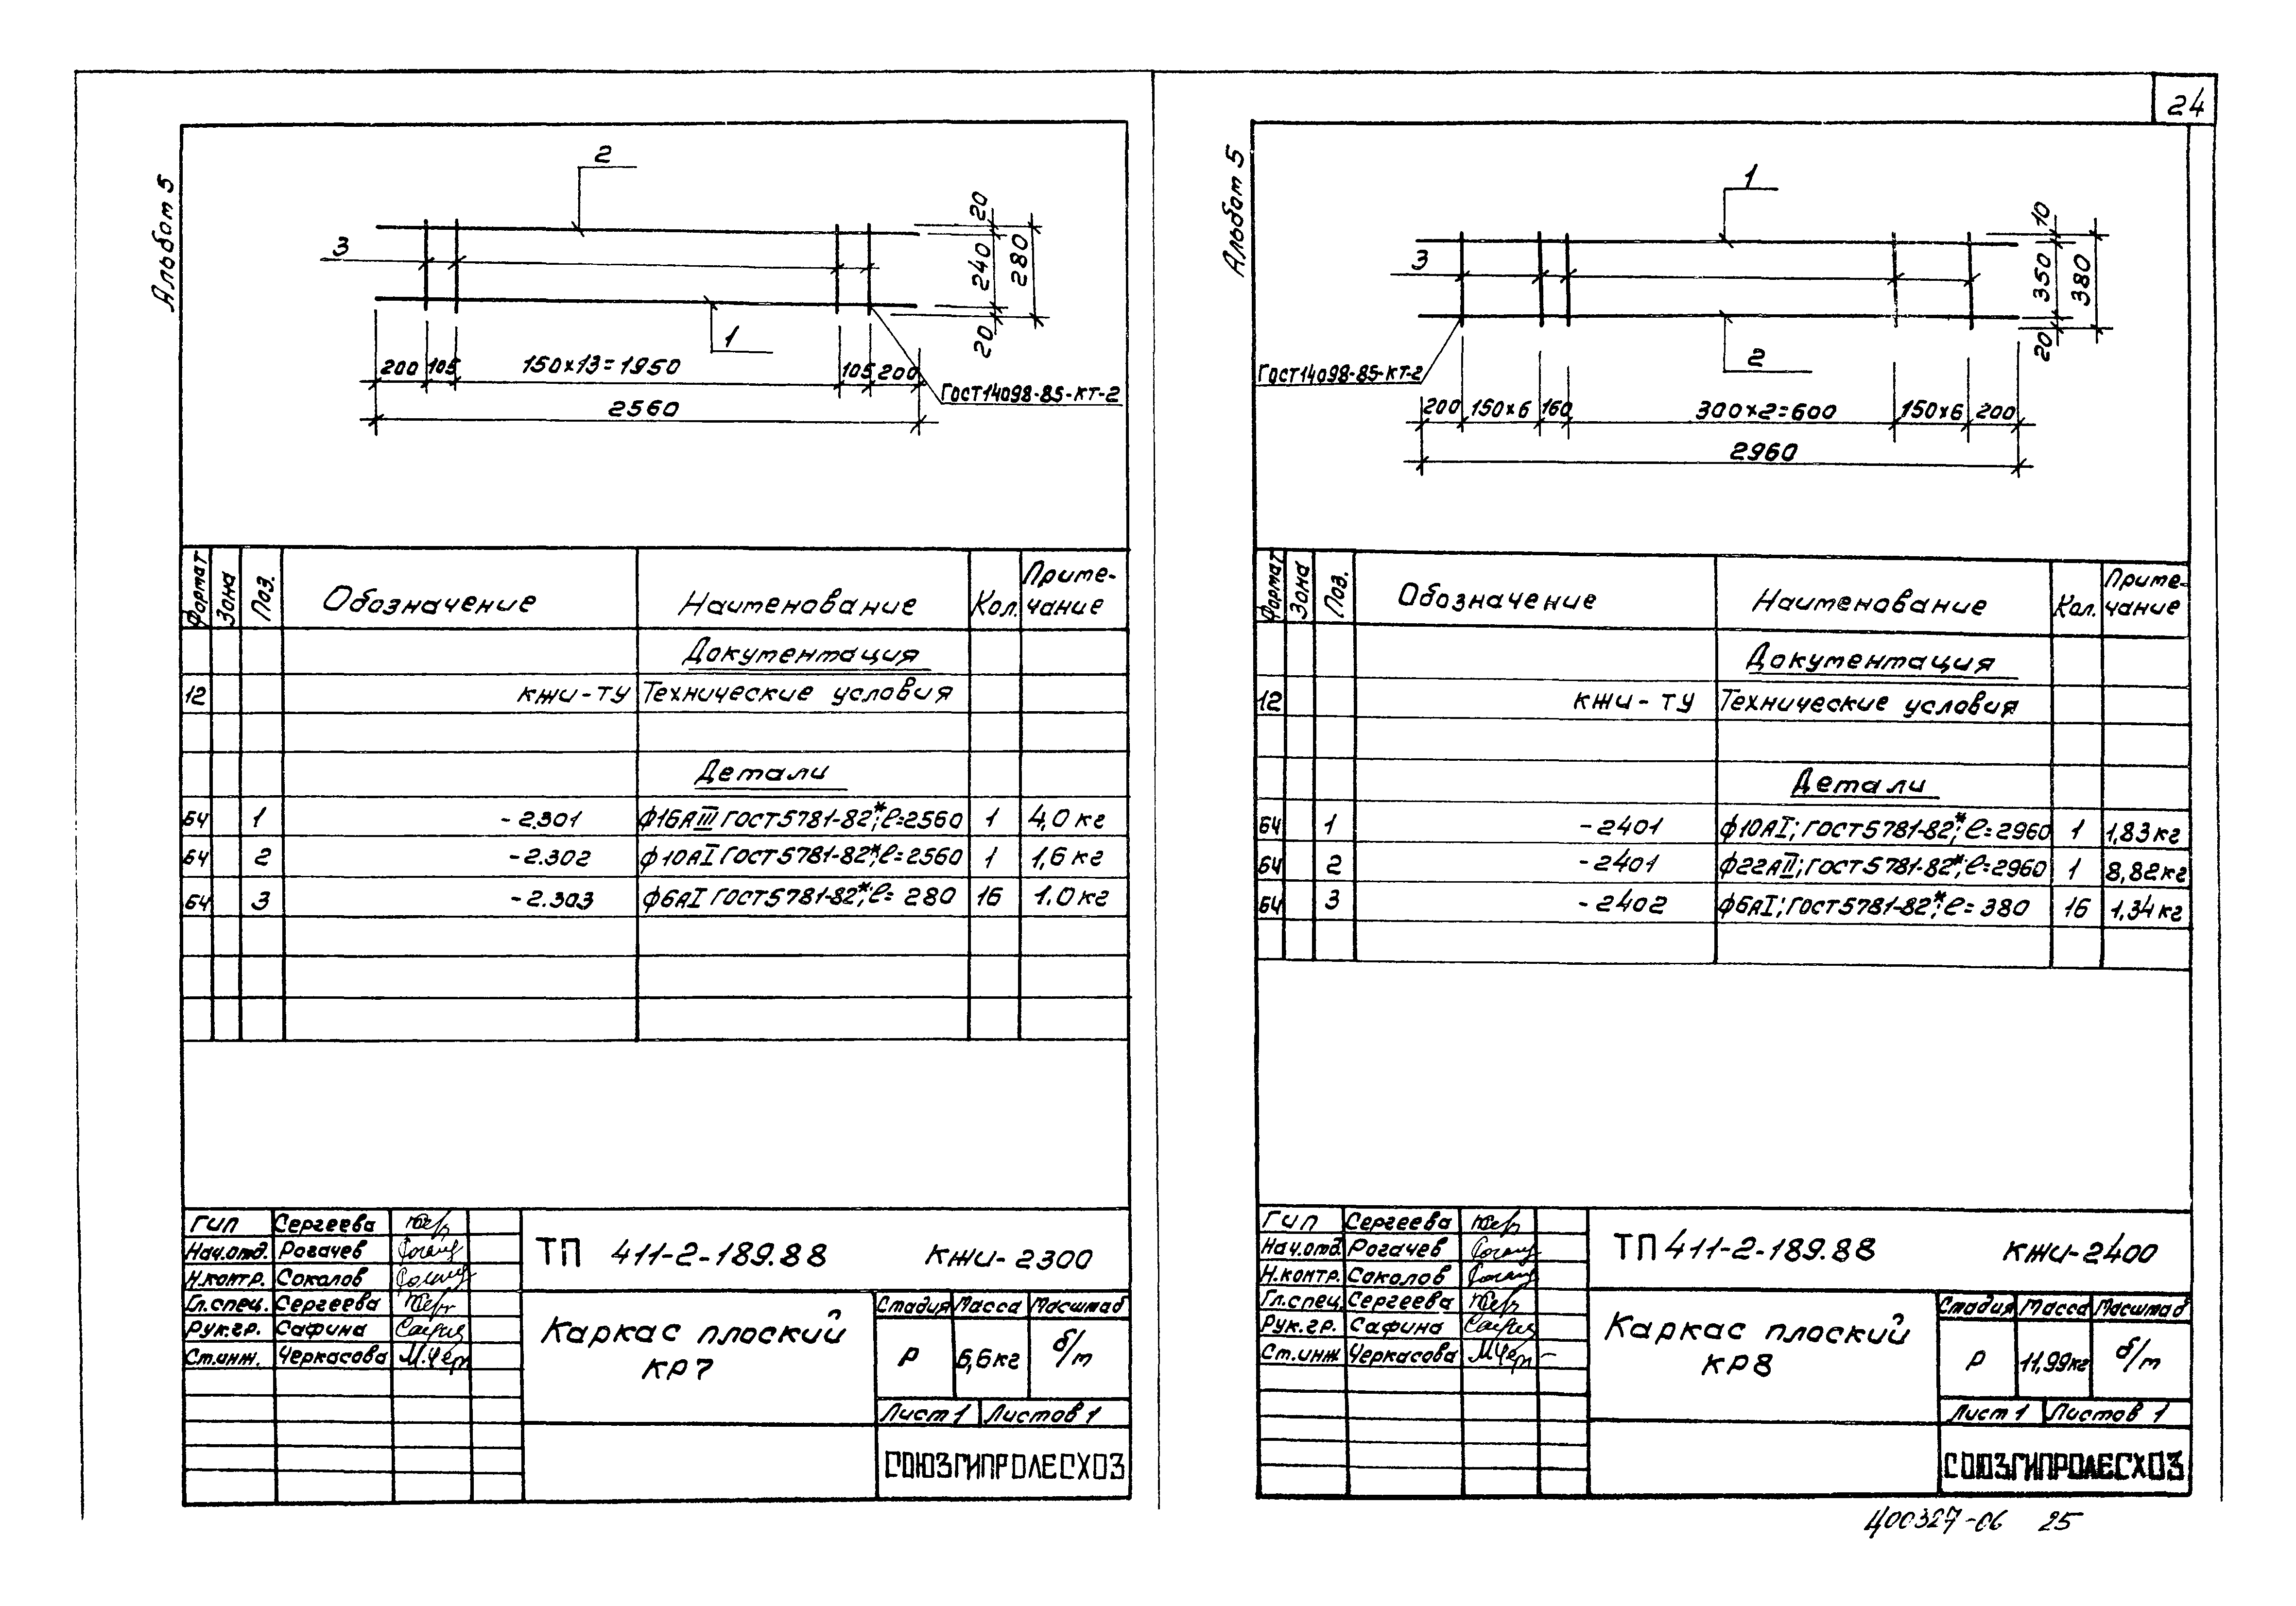 24
Альбом 5
2
3
1
20
240
280
20
200 105 150x13=1950 105 200
ГОСТ14098-85-КТ-2
2560
Формат Зона Поз. Обозначение Наименование Кол. Приме-
чание
Документация
12 КЖИ-ТУ Технические условия
Детали
БЧ 1 -2.301 ф16АIII ГОСТ5781-82*; ℓ=2560 1 4,0 кг
БЧ 2 -2.302 ф10АI ГОСТ5781-82*; ℓ=2560 1 1,6 кг
БЧ 3 -2.303 ф6АI ГОСТ5781-82*; ℓ= 280 16 1.0 кг
ГИП Сергеева
Нач.отд. Рогачев
Н.контр. Соколов
Гл.спец. Сергеева
Рук.гр. Сафина
Ст.инж. Черкасова М.Чер
ТП 411-2-189.88 КЖИ-2300
Каркас плоский
КР7
Стадия Масса Масштаб
Р 6,6кг б/м
Лист 1 Листов 1
СОЮЗГИПРОЛЕСХОЗ
Альбом 5
1
3
2
10
350
380
20
ГОСТ14098-85-КТ-2
200 150x6 160 300x2=600 150x6 200
2960
Формат Зона Поз. Обозначение Наименование Кол. Приме-
чание
Документация
12 КЖИ-ТУ Технические условия
Детали
БЧ 1 -2401 ф10АI; ГОСТ5781-82*; ℓ=2960 1 1,83кг
БЧ 2 -2401 ф22АII; ГОСТ5781-82*; ℓ=2960 1 8,82кг
БЧ 3 -2402 ф6АI; ГОСТ5781-82*; ℓ= 380 16 1,34кг
ГИП Сергеева
Нач.отд. Рогачев
Н.контр. Соколов
Гл.спец. Сергеева
Рук.гр. Сафина
Ст.инж Черкасова МЧер
ТП 411-2-189.88 КЖИ-2400
Каркас плоский
КР8
Стадия Масса Масштаб
Р 11,99кг б/м
Лист 1 Листов 1
СОЮЗГИПРОЛЕСХОЗ
400327-06 25